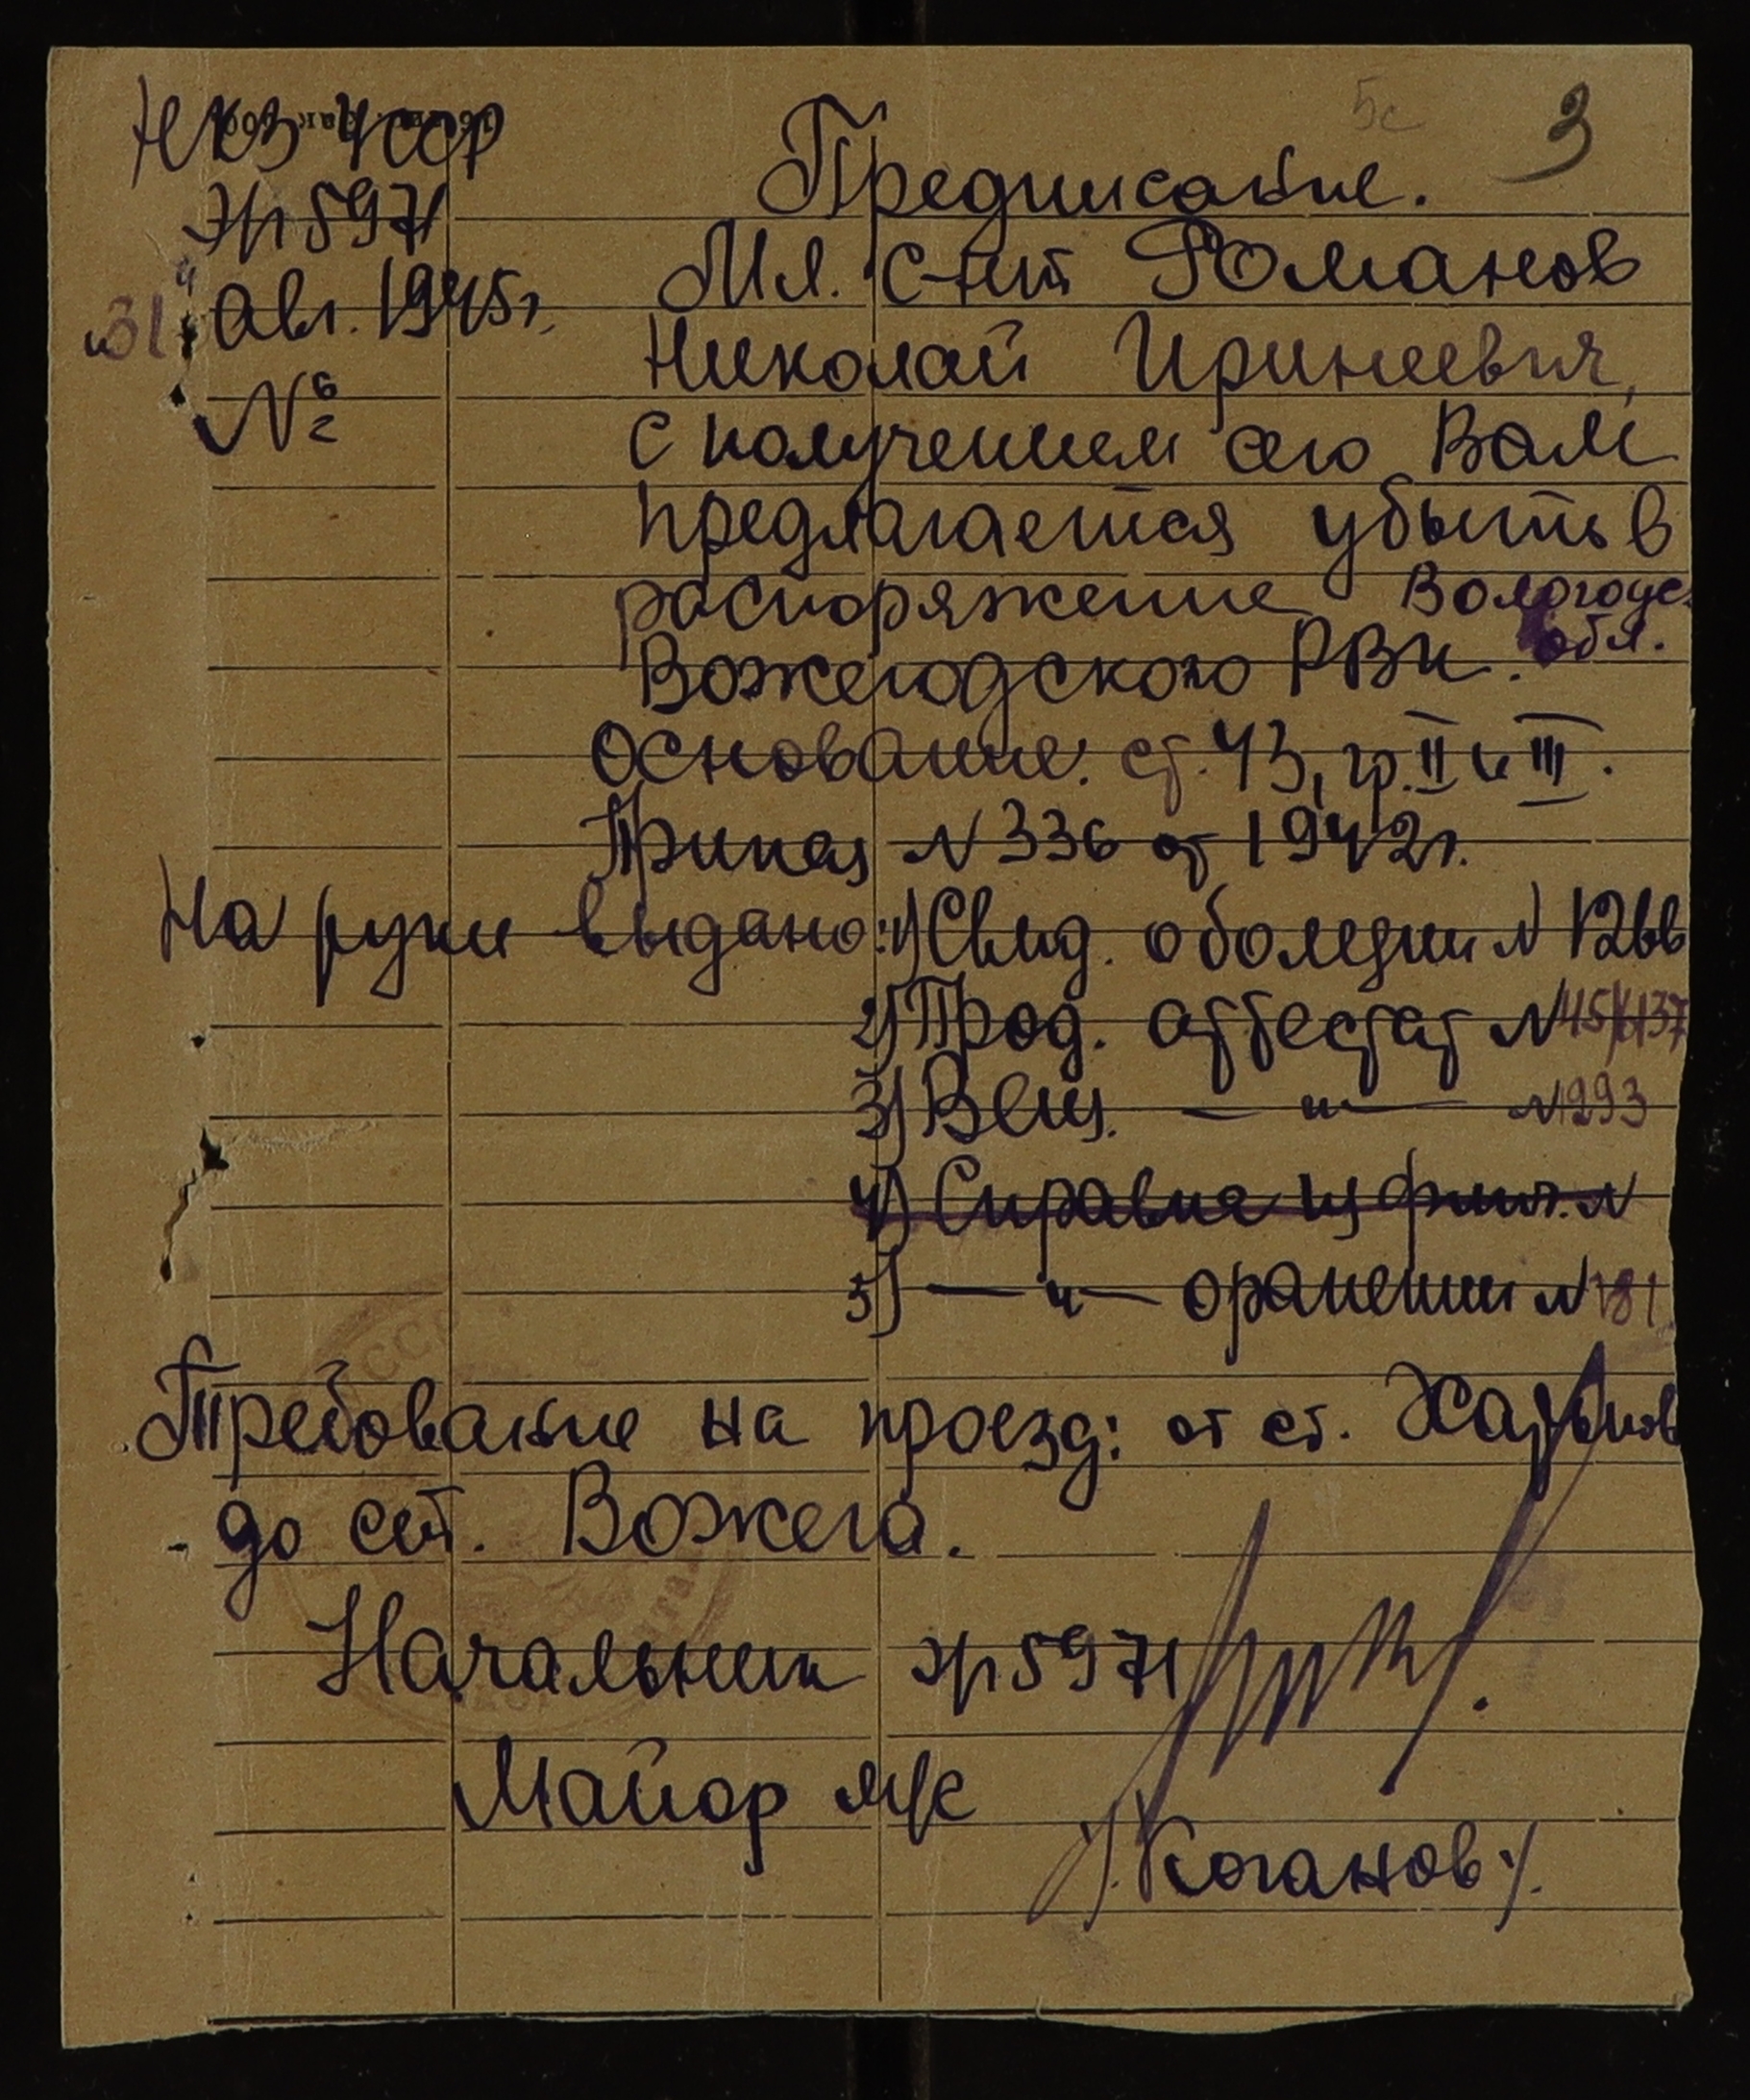 НКЗ УССР
эг 5971
"31" Авг. 1945г.
№ 6/2
5с
3
Предписание.
Мл. с-нт Романов
Николай Иринеевич,
с получением сего Вам
предлагается убыть в
распоряжение Вологодс.
обл.
Вожегодского РВК.
Основание: ст. 43, гр. II и III.
Приказ N 336 от 1942г.
На руки выдано: 1) Свид. о болезни N 1266
2) Прод. аттестат N
3) Вещ. — " — N 1293
4) Справка из фин. N
5) — " — о ранении N 181
Требование на проезд: от ст. Харьков
до ст. Вожега.
Начальник эг 5971
Майор м/с
/. Коганов /.